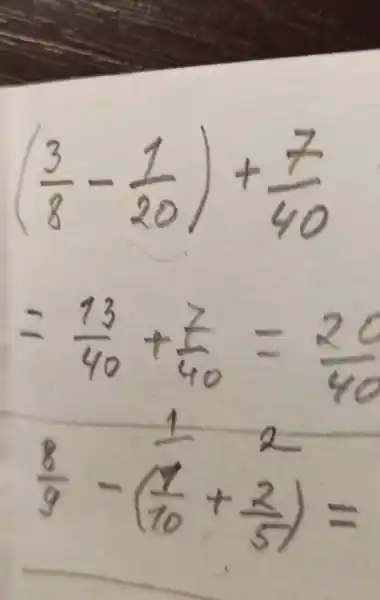 (3/8 - 1/20) + 7/40
= 13/40 + 7/40 = 20/40
1 2
8/9 - (1/10 + 2/5) =